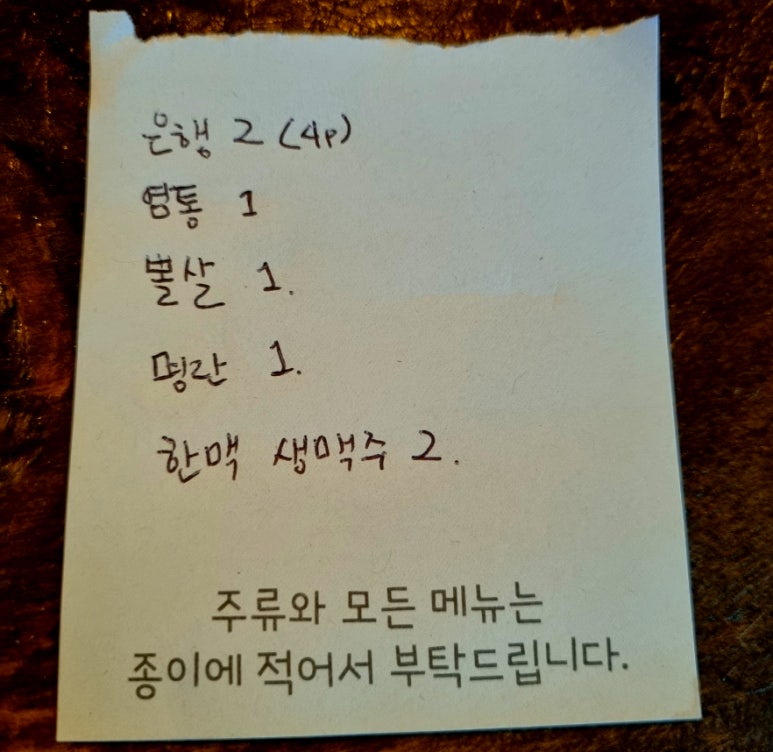 은행 2 (4p)
염통 1
뽈살 1.
명란 1.
한맥 생맥주 2.
주류와 모든 메뉴는
종이에 적어서 부탁드립니다.